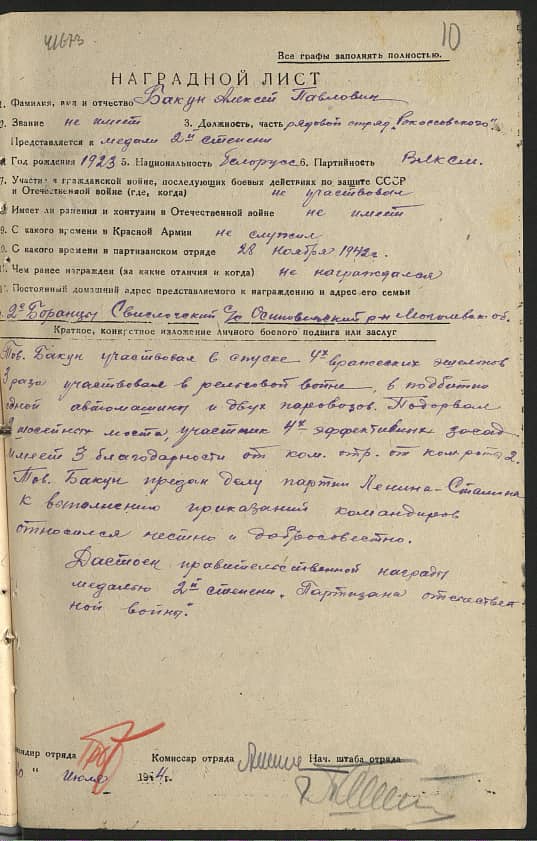 41673
10
Все графы заполнять полностью.
НАГРАДНОЙ ЛИСТ
1. Фамилия, имя и отчество Бакун Алексей Павлович
2. Звание не имеет 3. Должность, часть рядовой отряд „Рокоссовского"
Представляется к медали 2й степени
Год рождения 1923 5. Национальность белорусс 6. Партийность ВЛКСМ.
7. Участие в гражданской войне, последующих боевых действиях по защите СССР
и Отечественной войне (где, когда) не участвовал
8. Имеет ли ранения и контузии в Отечественной войне не имеет
9. С какого времени в Красной Армии не служил
10. С какого времени в партизанском отряде 28 ноября 1942г.
11. Чем ранее награжден (за какие отличия и когда) не награждался
12. Постоянный домашний адрес представляемого к награждению и адрес его семьи
Боранцы Свислочский с/с Осиповичский р-н Могилевск об.
Краткое, конкретное изложение личного боевого подвига или заслуг
Тов. Бакун участвовал в спуске 4х вражеских эшелонов
3 раза участвовал в рельсовой войне, в подбитии
одной автомашины и двух паровозов. Подорвал
шоссейных моста, участник 4х эффективних засад
Имеет 3 благодарности от ком. отр. от ком. роты 2.
Тов. Бакун предан делу партии Ленина-Сталина
к выполнению приказаний командиров
относился честно и добросовестно.
Дастоен правительственной награды
медалью 2й степени „Партизана отечествен-
ной войны".
Командир отряда Комиссар отряда Нач. штаба отряда
" июля 1944г.